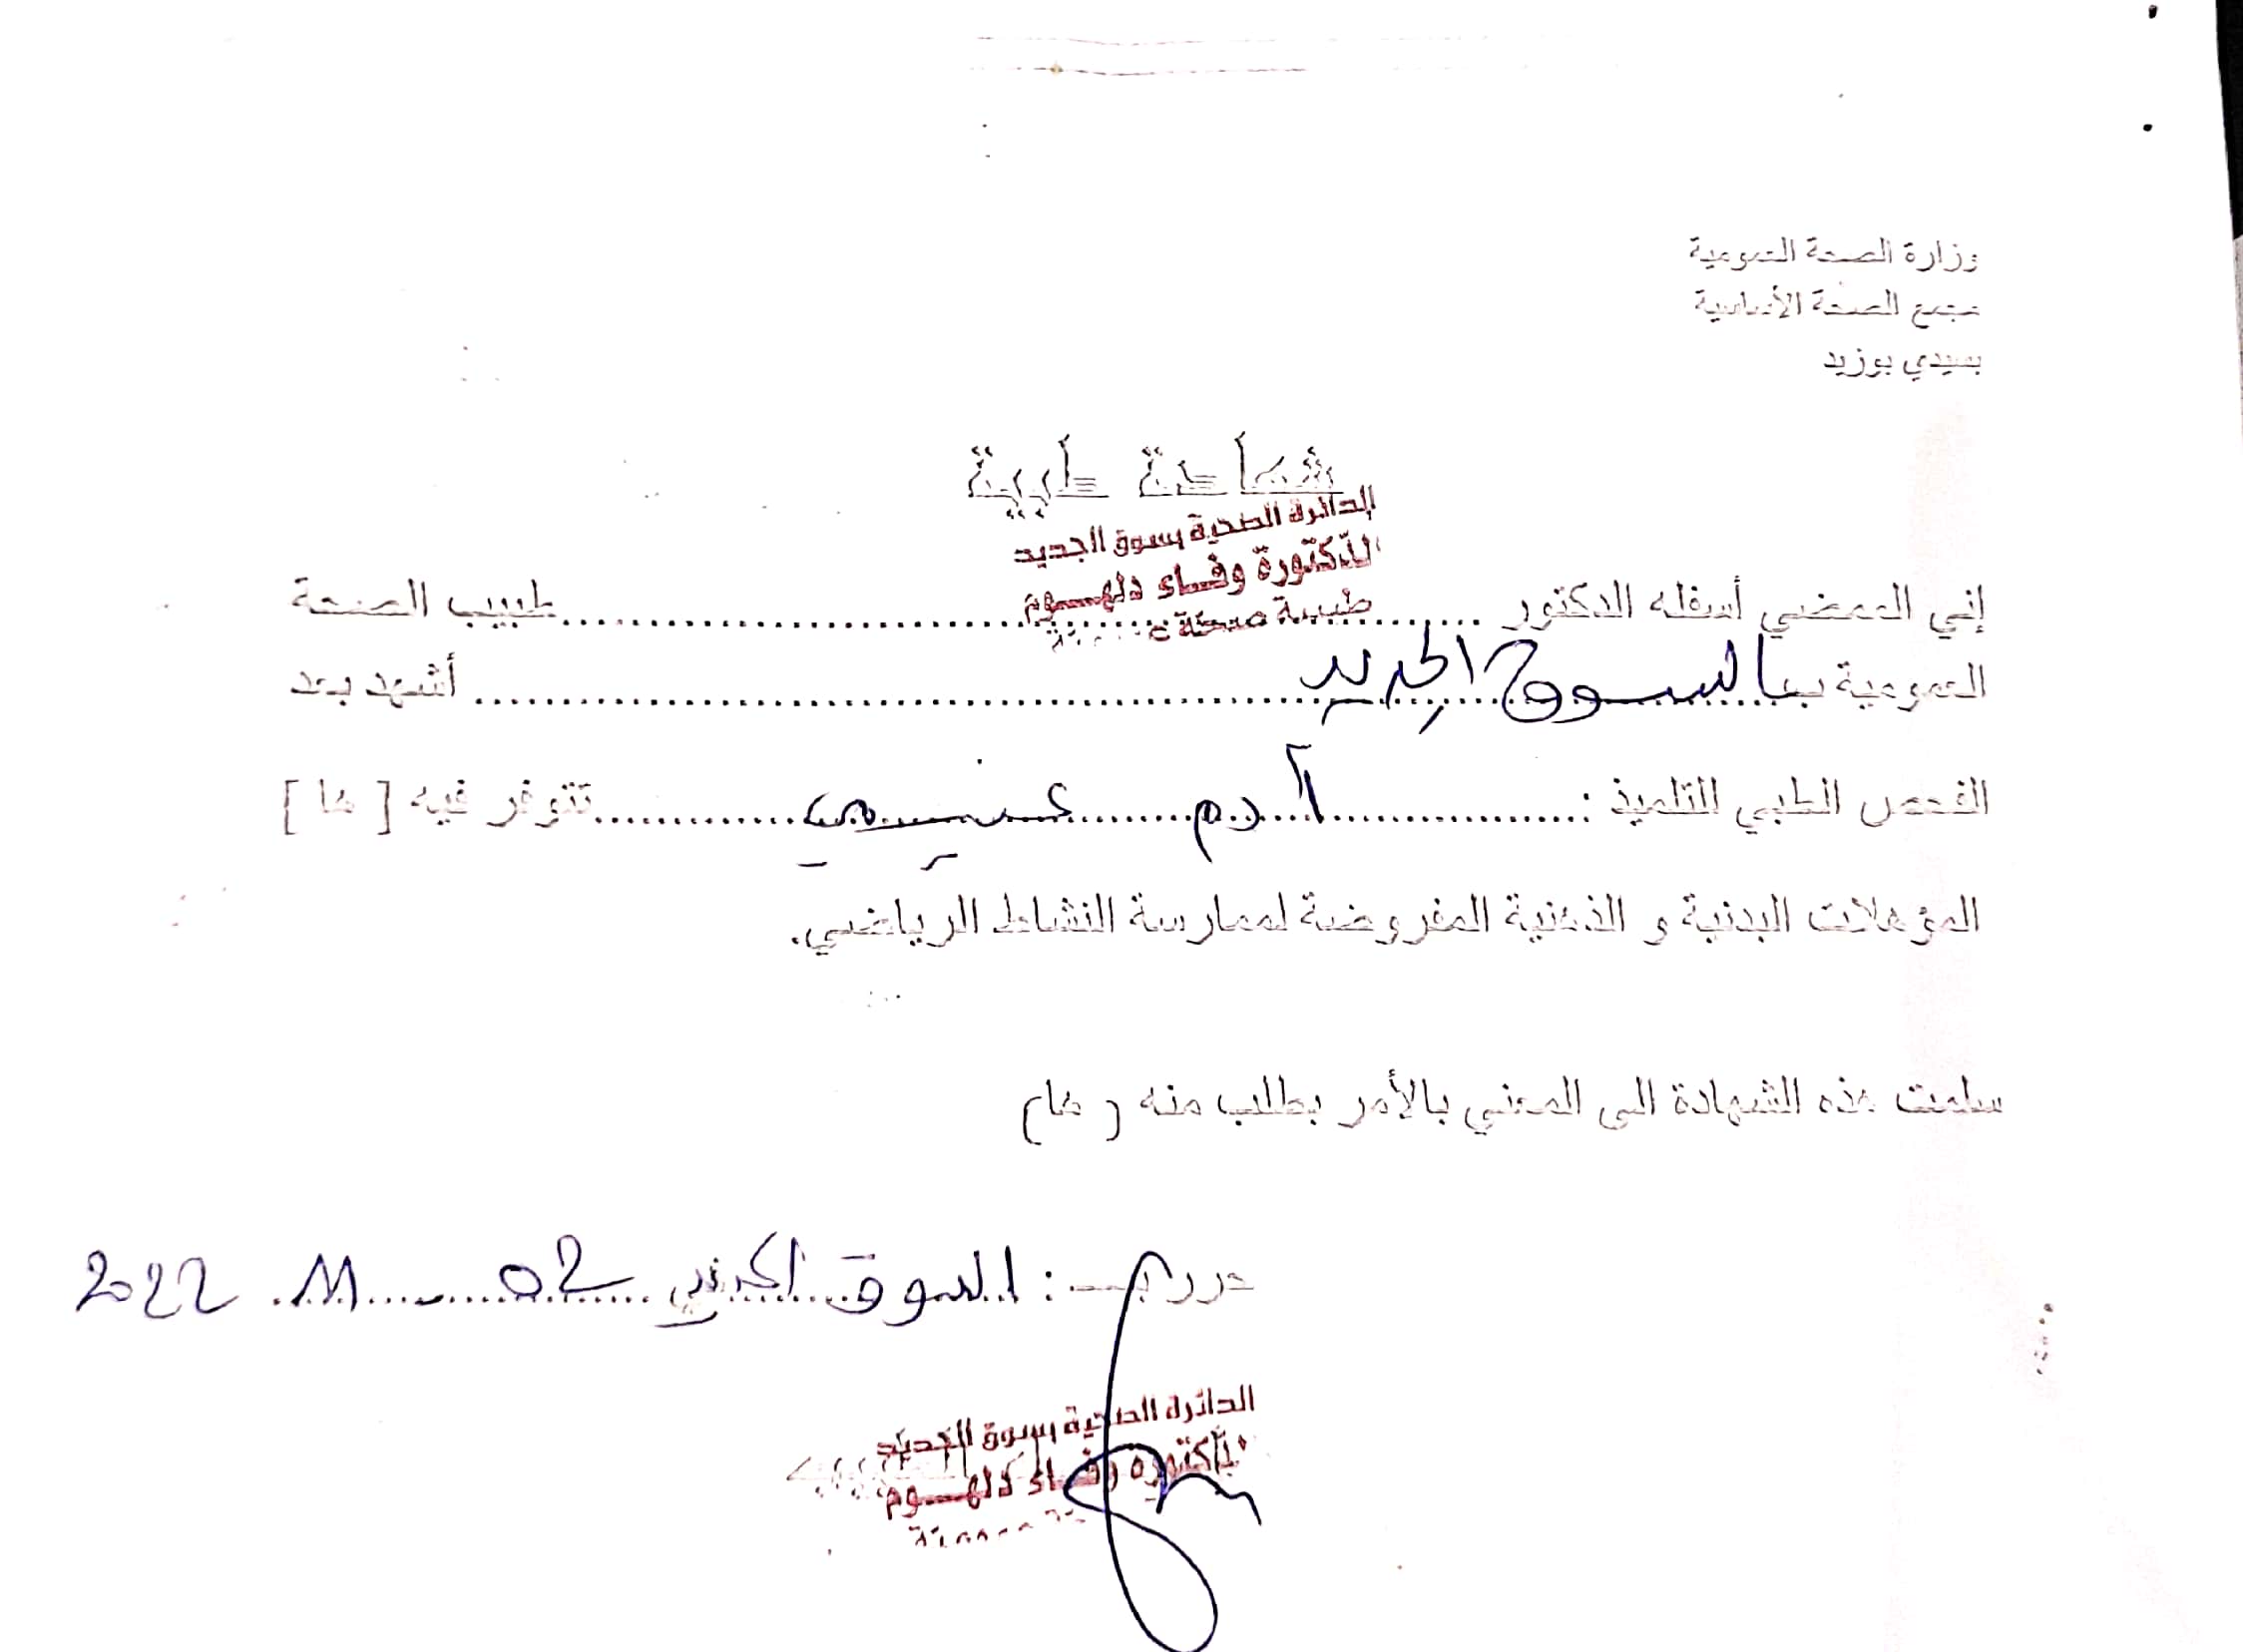 وزارة الصحة العمومية
مجمع الصحة الأساسية
بسيدي بوزيد
شهادة طبية
الدائرة الصحية بسوق الجديد
الدكتورة وفاء دلهوم
طبيبة صحة
إني الممضي أسفله الدكتور ........ طبيب الصحة
العمومية ب بالسوق الجديد ........ أشهد بعد
الفحص الطبي للتلميذ : آدم ........ تتوفر فيه [ ها ]
المؤهلات البدنية و الذهنية المفروضة لممارسة النشاط الرياضي.
سلمت هذه الشهادة الى المعني بالأمر بطلب منه ( ها )
حرر بـ : السوق الجديد 02 11 2022
الدائرة الصحية بسوق الجديد
الدكتورة وفاء دلهوم